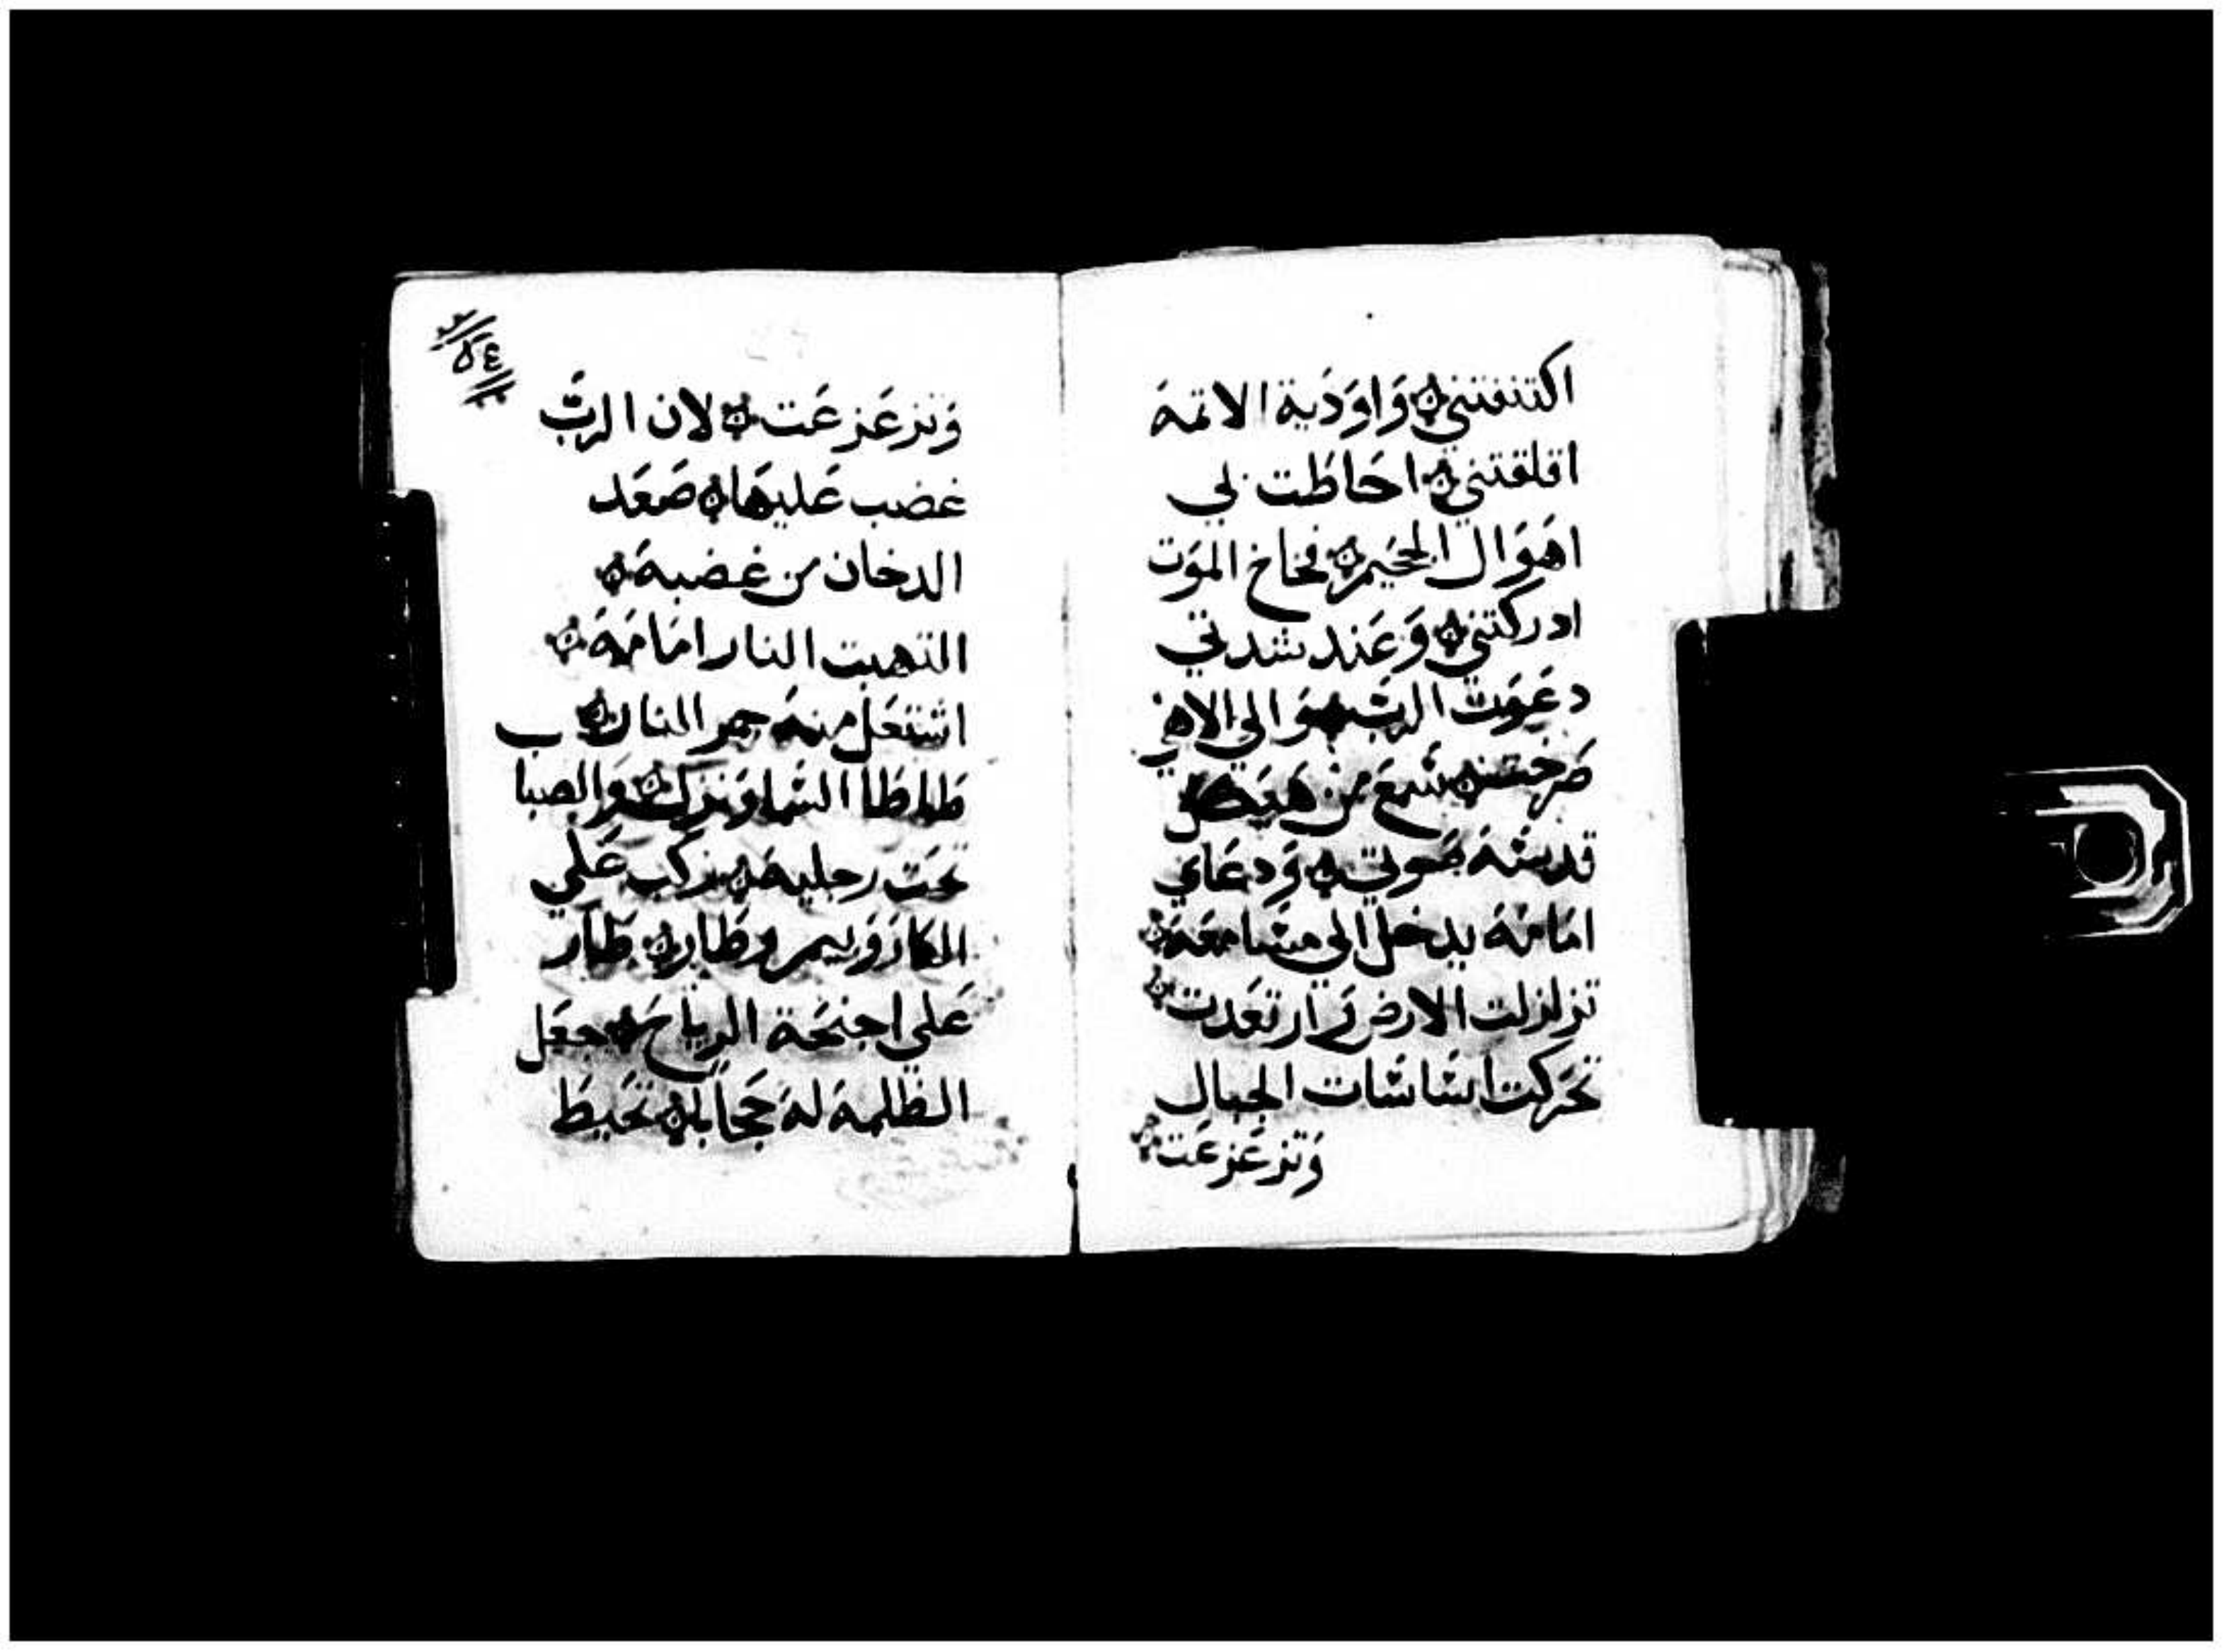 اكتنفتني وَاوَدَية الاثمة
اقلقتني احَاطَت بي
اهَوَال الجحَيم فخاخ الموَت
ادركتني وَعَند شدتي
دعَوَت الربّ وَالي الاهي
صَرخت سَمعَ من هَيكل
قدسَه صَوتي وَدعَاي
امَامَه يدخل الي مسَامعَه
تزلزلت الارض وَارتعَدت
تحَركت اسَاسَات الجبال
وَتزعَزعَت
وَتزعَزعَت لان الربّ
غضب عَليهَا صَعَد
الدخان من غضبهَ
التهبت النار امَامَهَ
اشتعَل منهَ جمر النار
طاطَا السَما وَنزل وَالضباب
تحَت رجليهَ ركب عَلي
الكاروَبيم وطَار طَار
عَلي اجنحَة الريَاحَ جعَل
الظلمهَ لهَ حجَاباً تحَيطَ